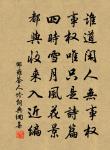 誰道閑人無事權
事權唯只是詩篇
四時雪月風花景
都與收來入近編
邵雍答人吟